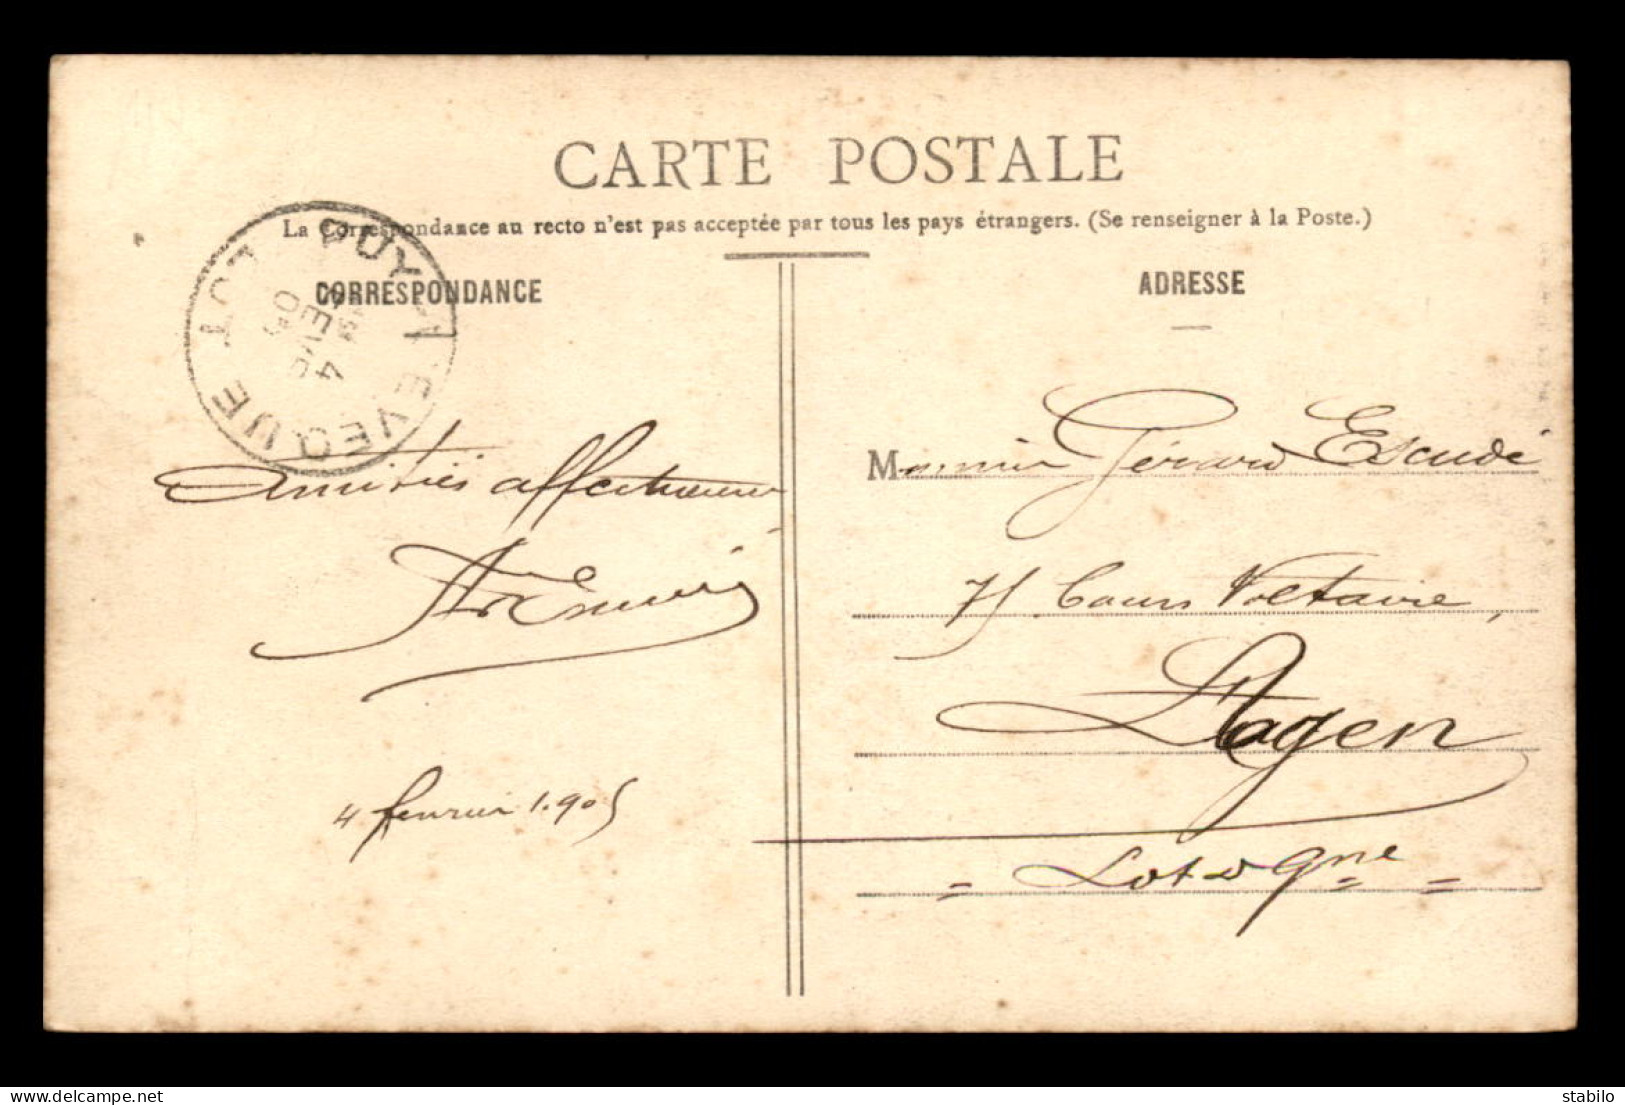 CARTE POSTALE
La Correspondance au recto n'est pas acceptée par tous les pays étrangers. (Se renseigner à la Poste.)
CORRESPONDANCE
PUY-L'EVEQUE LOT
4
FEVR
05
Amitiés affectueuses
4 février 1.905
ADRESSE
Monsieur Gérard Escudé
75 Cours Voltaire,
Agen
Lot & Gne
delcampe.net
stabilo